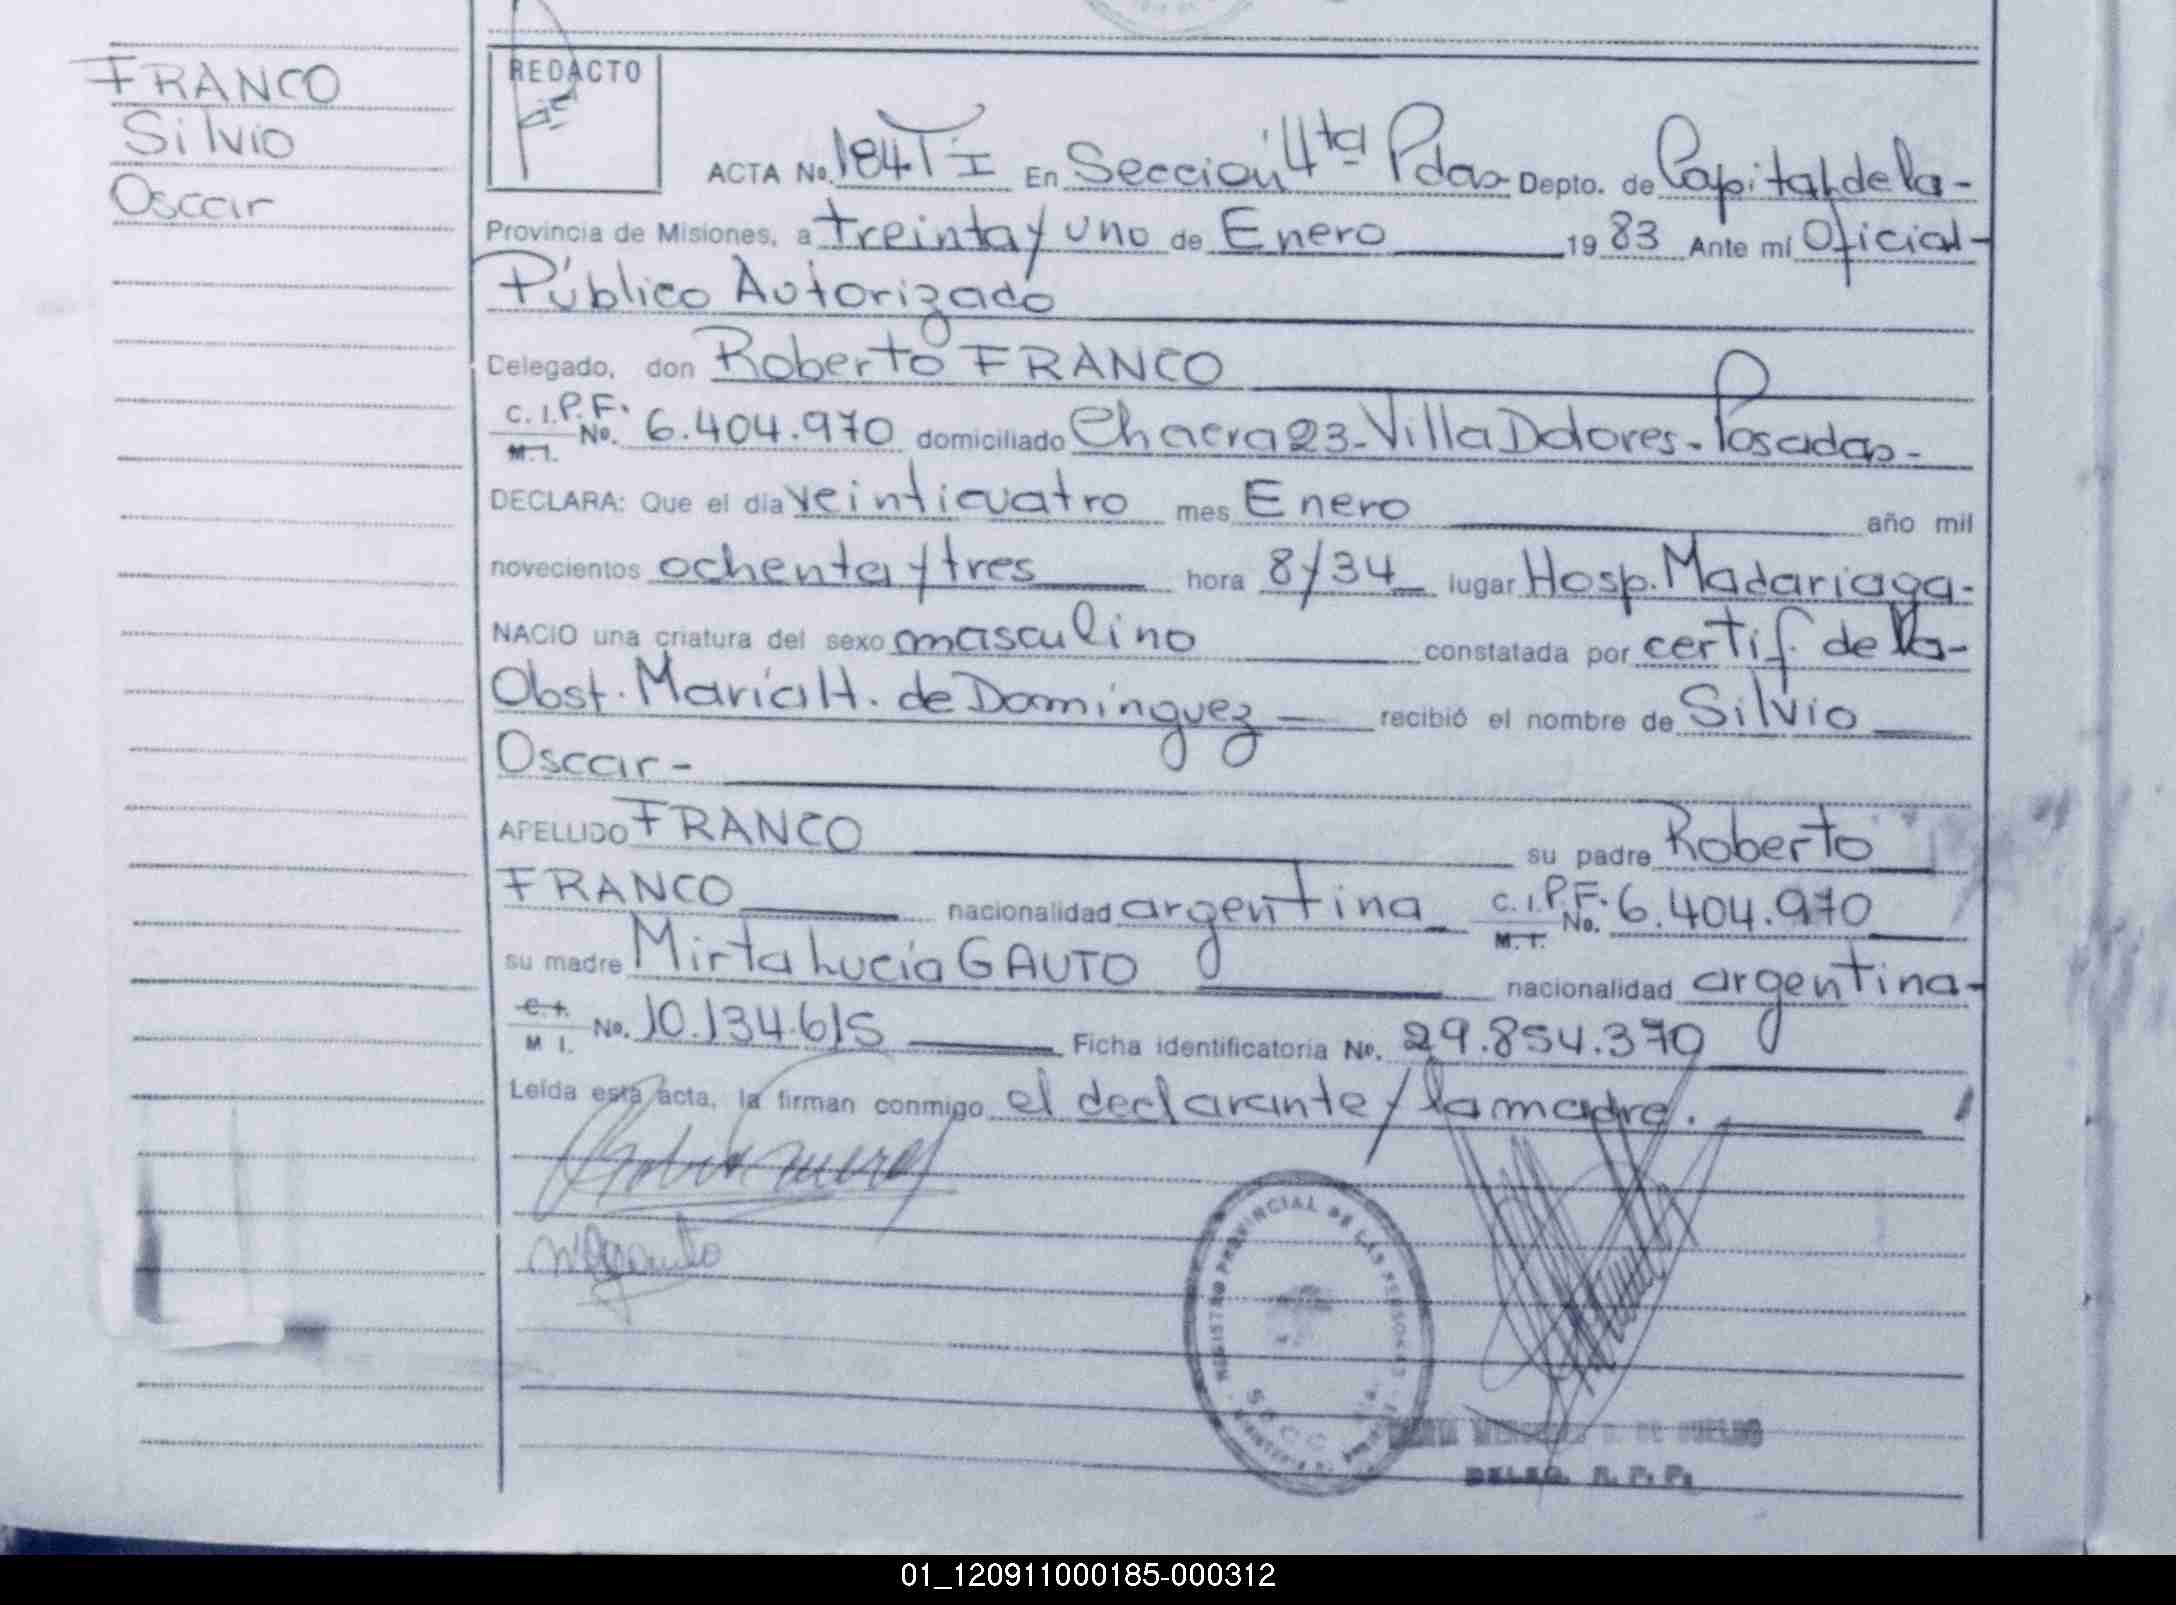 FRANCO
Silvio
Oscar
REDACTO
ACTA No. 184 T I En Sección 4ta Pdas Depto. de Capital de la-
Provincia de Misiones, a treinta y uno de Enero 19 83 Ante mí Oficial-
Público Autorizado
Delegado, don Roberto FRANCO
C. I. P. F. M. I. No. 6.404.970 domiciliado Chacra 23-Villa Dolores-Posadas-
DECLARA: Que el día veinticuatro mes Enero año mil
novecientos ochenta y tres hora 8/34 lugar Hosp. Madariaga-
NACIO una criatura del sexo masculino constatada por certif. de la-
Obst. María H. de Domínguez recibió el nombre de Silvio
Oscar-
APELLIDO FRANCO su padre Roberto
FRANCO nacionalidad argentina C. I. P. F. M. I. No. 6.404.970
su madre Mirta Lucía GAUTO nacionalidad argentina-
C. I. M I. No. 10.134.615 Ficha identificatoria No. 29.854.370
Leída esta acta, la firman conmigo el declarante y la madre.
REGISTRO PROVINCIAL DE LAS PERSONAS
DELEG. R. P. P.
01_120911000185-000312